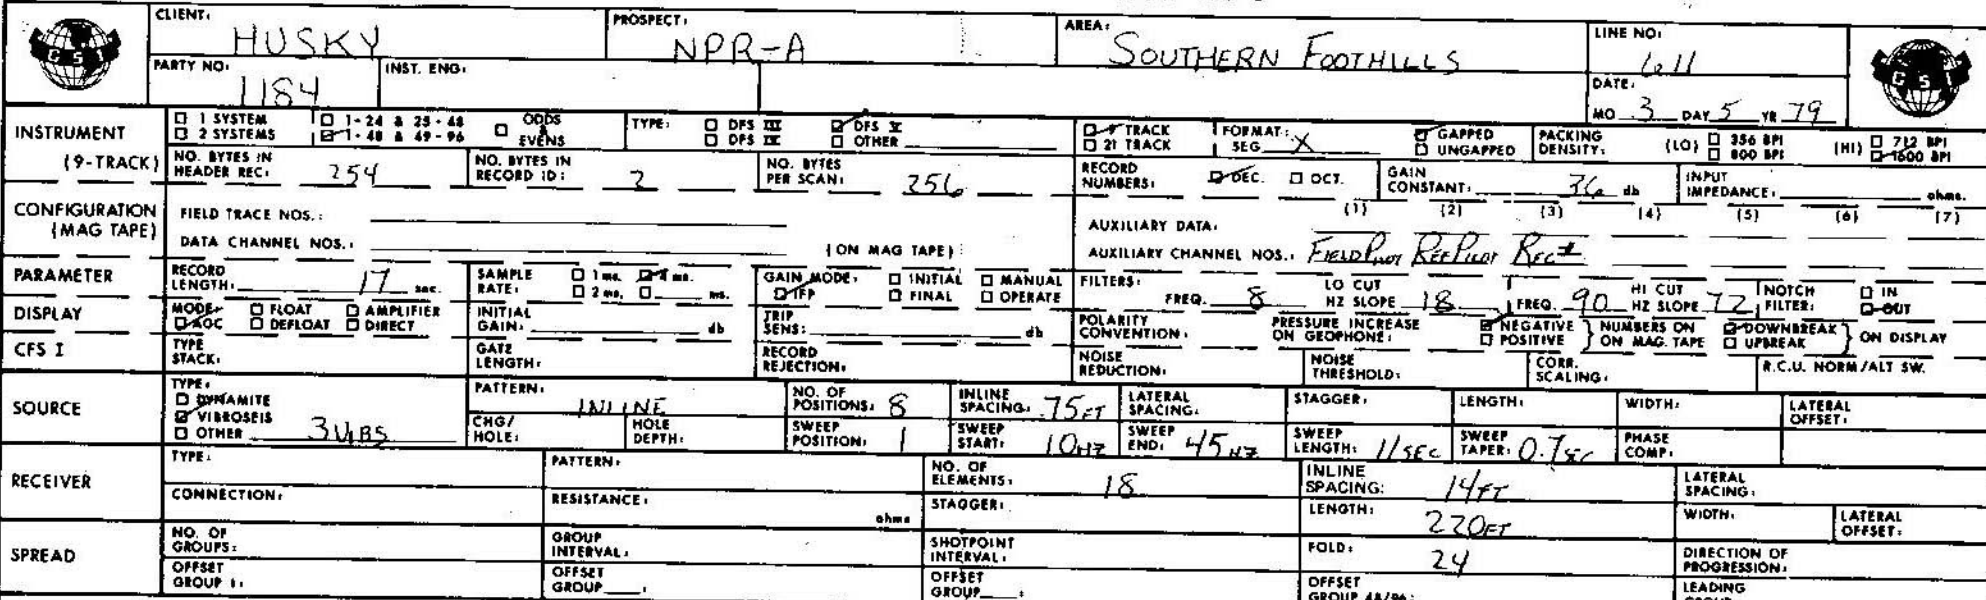 CLIENT: HUSKY PROSPECT: NPR-A AREA: SOUTHERN FOOTHILLS LINE NO: 611
GSI GSI
PARTY NO: 1184 INST. ENG: DATE: MO 3 DAY 5 YR 79
INSTRUMENT (9-TRACK)
1 SYSTEM 1-24 & 25-48 ODDS & EVENS TYPE: DFS III DFS V 9 TRACK FORMAT: SEG X GAPPED PACKING DENSITY: (LO) 356 BPI (HI) 712 BPI
2 SYSTEMS 1-48 & 49-96 DFS IV OTHER 21 TRACK UNGAPPED 800 BPI 1600 BPI
NO. BYTES IN HEADER REC: 254 NO. BYTES IN RECORD ID: 2 NO. BYTES PER SCAN: 256 RECORD NUMBERS: DEC. OCT. GAIN CONSTANT: 36 db INPUT IMPEDANCE: ohms.
CONFIGURATION (MAG TAPE)
FIELD TRACE NOS.: AUXILIARY DATA: (1) (2) (3) (4) (5) (6) (7)
DATA CHANNEL NOS.: (ON MAG TAPE) AUXILIARY CHANNEL NOS.: FIELD PILOT REF PILOT REC #
PARAMETER RECORD LENGTH: 17 sec. SAMPLE RATE: 1 ms. 4 ms. 2 ms. ms. GAIN MODE: INITIAL MANUAL IFP FINAL OPERATE FILTERS: FREQ. 8 LO CUT HZ SLOPE 18 FREQ. 90 HI CUT HZ SLOPE 72 NOTCH FILTER: IN OUT
DISPLAY MODE: FLOAT AMPLIFIER AGC DEFLOAT DIRECT INITIAL GAIN: db TRIP SENS: db POLARITY CONVENTION: PRESSURE INCREASE ON GEOPHONE: NEGATIVE POSITIVE NUMBERS ON MAG. TAPE DOWNBREAK UPBREAK ON DISPLAY
CFS I TYPE STACK: GATE LENGTH: RECORD REJECTION: NOISE REDUCTION: NOISE THRESHOLD: CORR. SCALING: R.C.U. NORM/ALT SW.
SOURCE TYPE: DYNAMITE VIBROSEIS OTHER 3 VIBS PATTERN: INLINE NO. OF POSITIONS: 8 INLINE SPACING: 75 FT LATERAL SPACING: STAGGER: LENGTH: WIDTH: LATERAL OFFSET:
CHG/HOLE: HOLE DEPTH: SWEEP POSITION: 1 SWEEP START: 10 HZ SWEEP END: 45 HZ SWEEP LENGTH: 11 SEC SWEEP TAPER: 0.7 SEC PHASE COMP:
RECEIVER TYPE: PATTERN: NO. OF ELEMENTS: 18 INLINE SPACING: 14 FT LATERAL SPACING:
CONNECTION: RESISTANCE: ohms STAGGER: LENGTH: 220 FT WIDTH: LATERAL OFFSET:
SPREAD NO. OF GROUPS: GROUP INTERVAL: SHOTPOINT INTERVAL: FOLD: 24 DIRECTION OF PROGRESSION:
OFFSET GROUP 1: OFFSET GROUP : OFFSET GROUP : OFFSET GROUP 48/96: LEADING